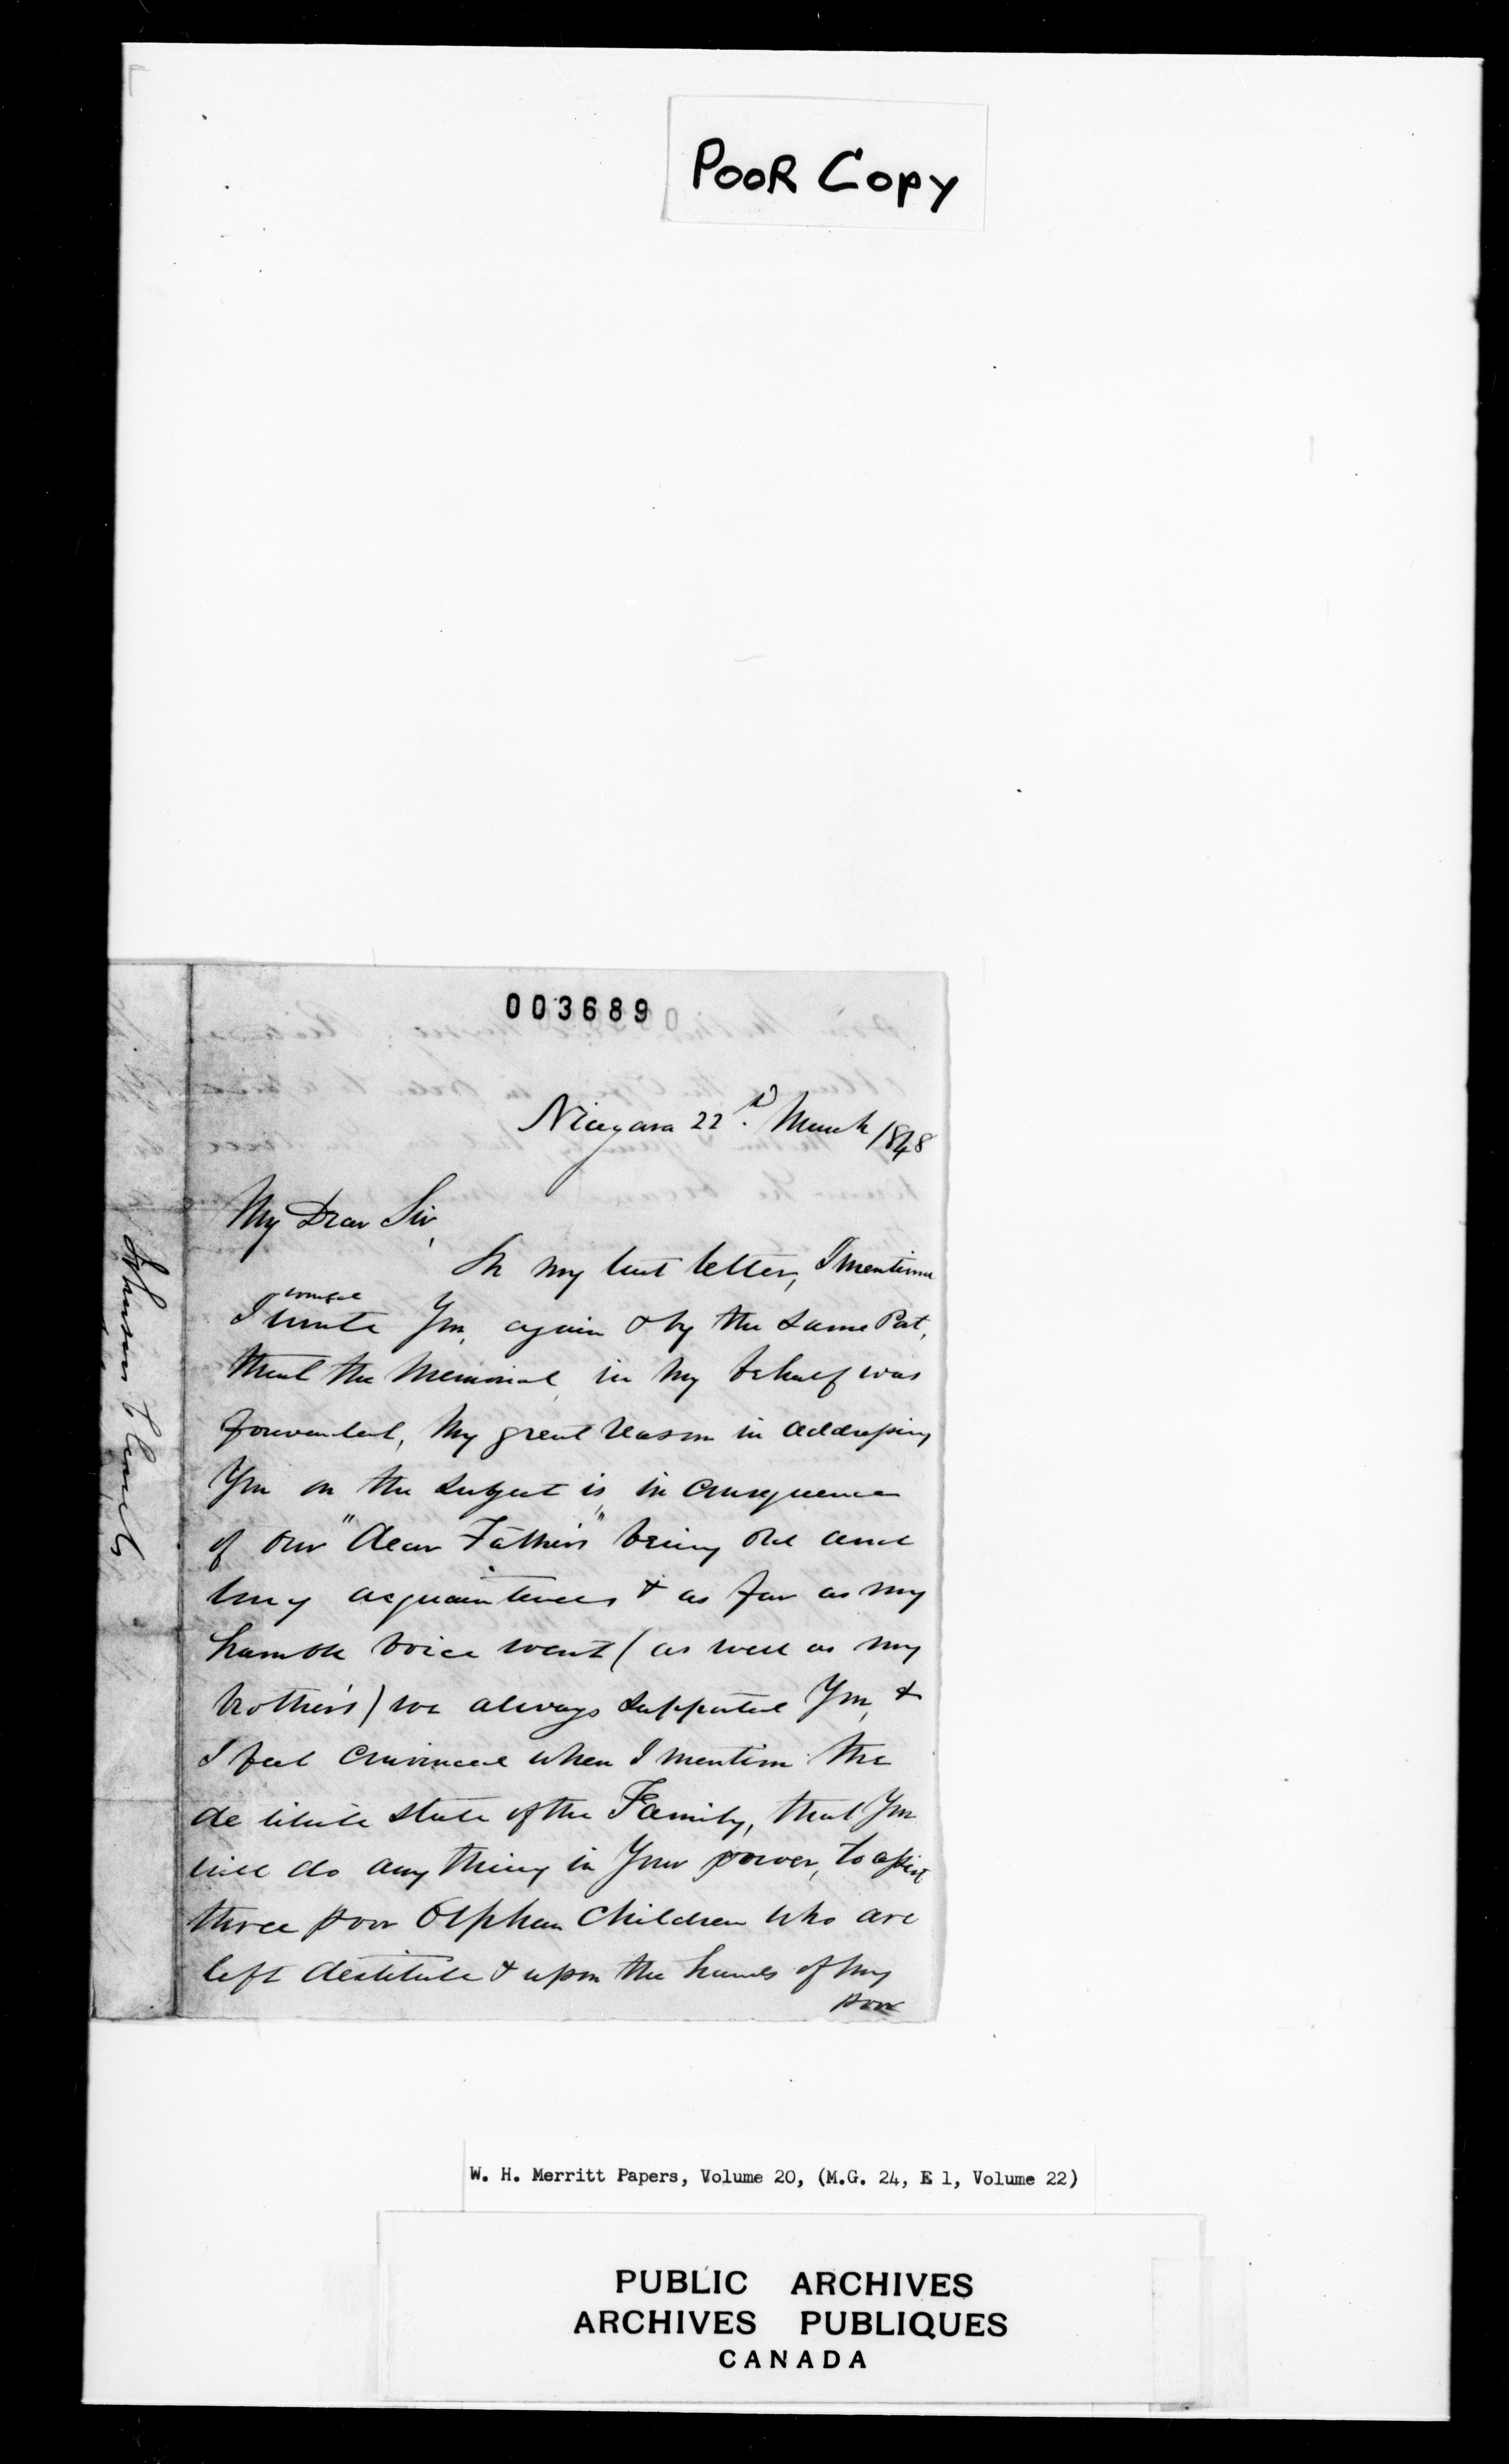 POOR COPY
003689
Niagara 22d. March 1848
My Dear Sir,
In my last letter, I mention
I would
write You, again & by the same Post,
that the Memorial, in my behalf was
forwarded, My great reason in addressing
You on the subject is, in consequence
of our "dear Fathers" being old and
long acquaintences & as far as my
humble voice went (as well as my
brothers) we always supported You, &
I feel convinced when I mention the
de titute state of the Family, that You
will do any thing in Your power, to assist
three poor Orphan Children who are
left destitute & upon the hands of my
poor
Johnson
W. H. Merritt Papers, Volume 20, (M.G. 24, E 1, Volume 22)
PUBLIC ARCHIVES
ARCHIVES PUBLIQUES
CANADA